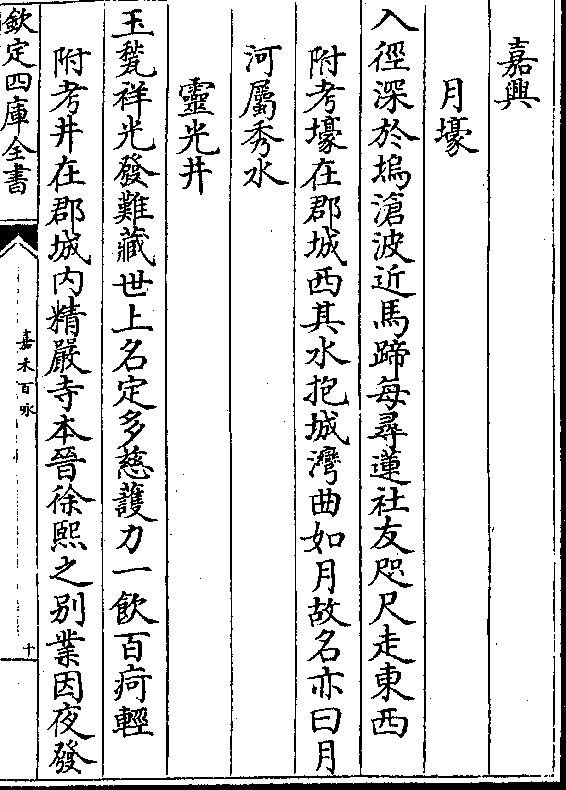 嘉興
月壕
入徑深於塢滄波近馬蹄每尋蓮社友咫尺走東西
附考壕在郡城西其水抱城灣曲如月故名亦曰月
河屬秀水
靈光井
玉甃祥光發難藏世上名定多慈護力一飲百疴輕
附考井在郡城内精嚴寺本晉徐熙之別業因夜發
欽定四庫全書
嘉禾百咏
十